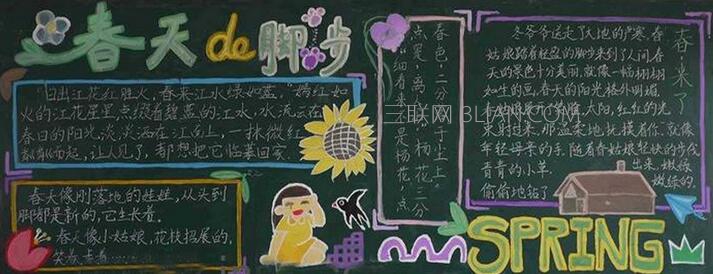 春天de脚步
"日出江花红胜火,春来江水绿如蓝。"嫣红如
火的江花星星点缀着碧蓝的江水,水流云在
春日的阳光淡淡洒在江面上,一抹微红
而起,让人见了,都想把它临摹回家。
春天像刚落地的娃娃,从头到
脚都是新的,它生长着。
春天像小姑娘,花枝招展的,
笑着,走着……
春色三分,二分尘土,
点是,离人
细看来,不是杨花,点
三联网 3LIAN.COM
春来了
冬爷爷送走了大地的严寒,春
姑娘踏着轻盈的脚步来到了人间。春
天的景色十分美丽,就像一幅栩栩
如生的画。春天的阳光格外明媚,
太阳,红红的光
束射过来,那温柔地抚摸着你,就像
年轻母亲的手。随着春姑娘轻快的步伐
青青的小草,
偷偷地钻了
出来,嫩嫩
的,绿绿的。
SPRING